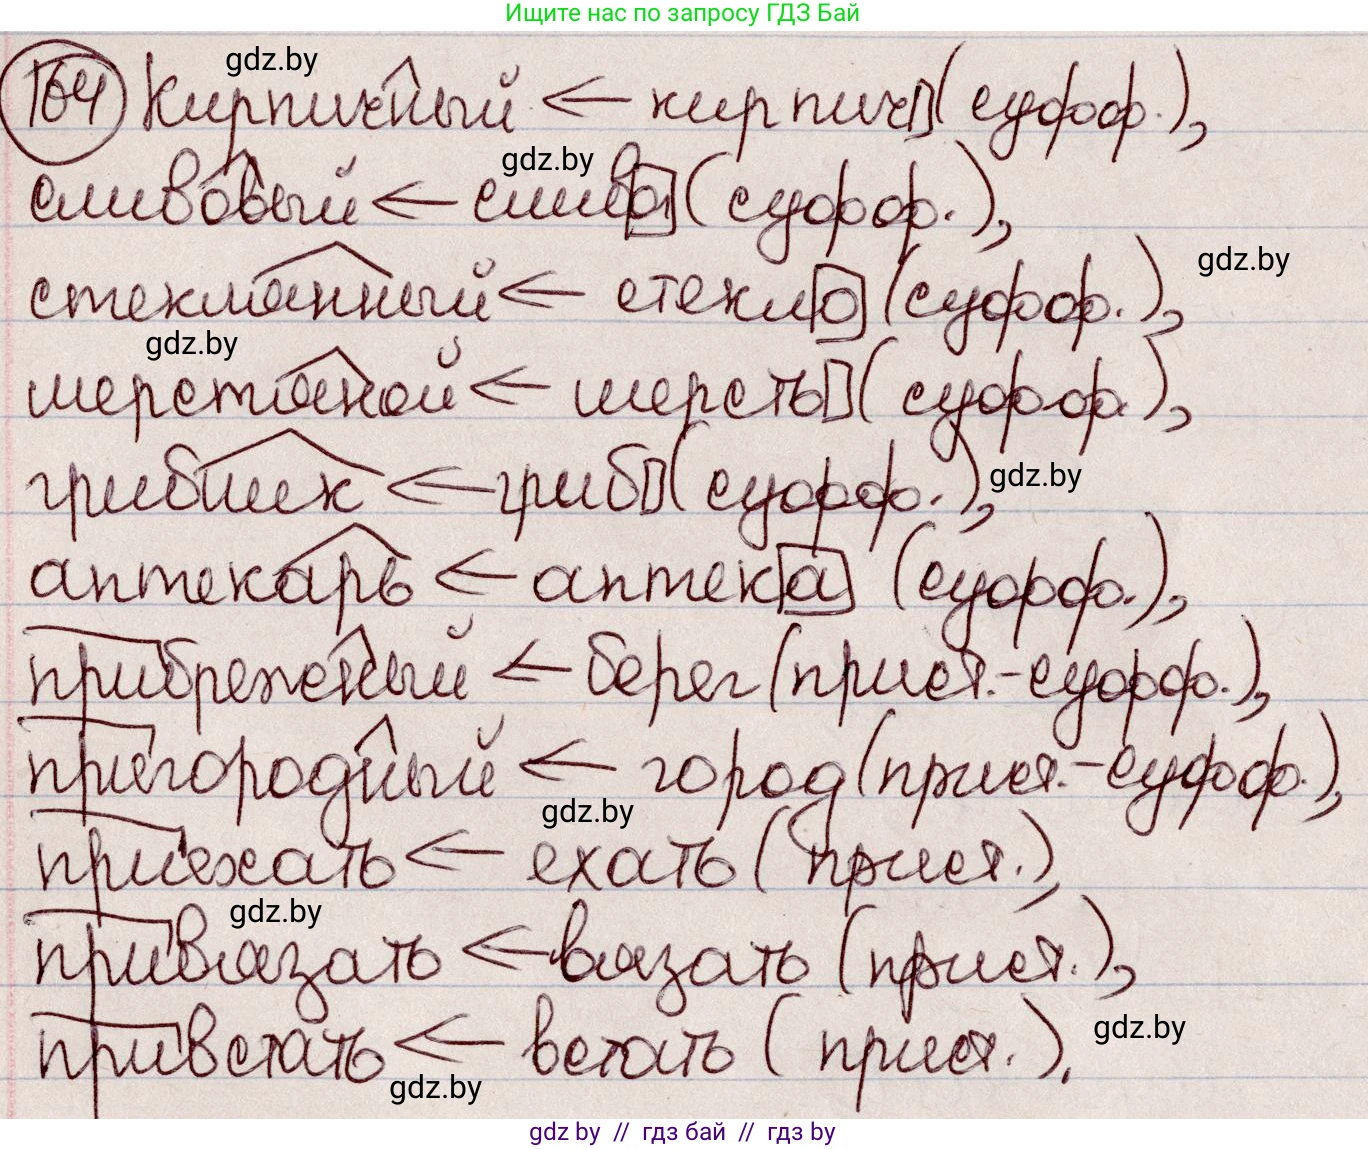 Ищите нас по запросу ГДЗ Бай
gdz.by
164 Кирпичный ← кирпич (суфф.),
gdz.by
сливовый ← слива (суфф.),
gdz.by
стеклянный ← стекло (суфф.),
gdz.by
шерстяной ← шерсть (суфф.),
грибник ← гриб (суфф.),
gdz.by
аптекарь ← аптека (суфф.),
прибрежный ← берег (прист.-суфф.),
пригородный ← город (прист.-суфф.),
gdz.by
приехать ← ехать (прист.),
gdz.by
привязать ← вязать (прист.),
привстать ← встать (прист.).
gdz.by
gdz.by
gdz by // гдз бай // гдз by